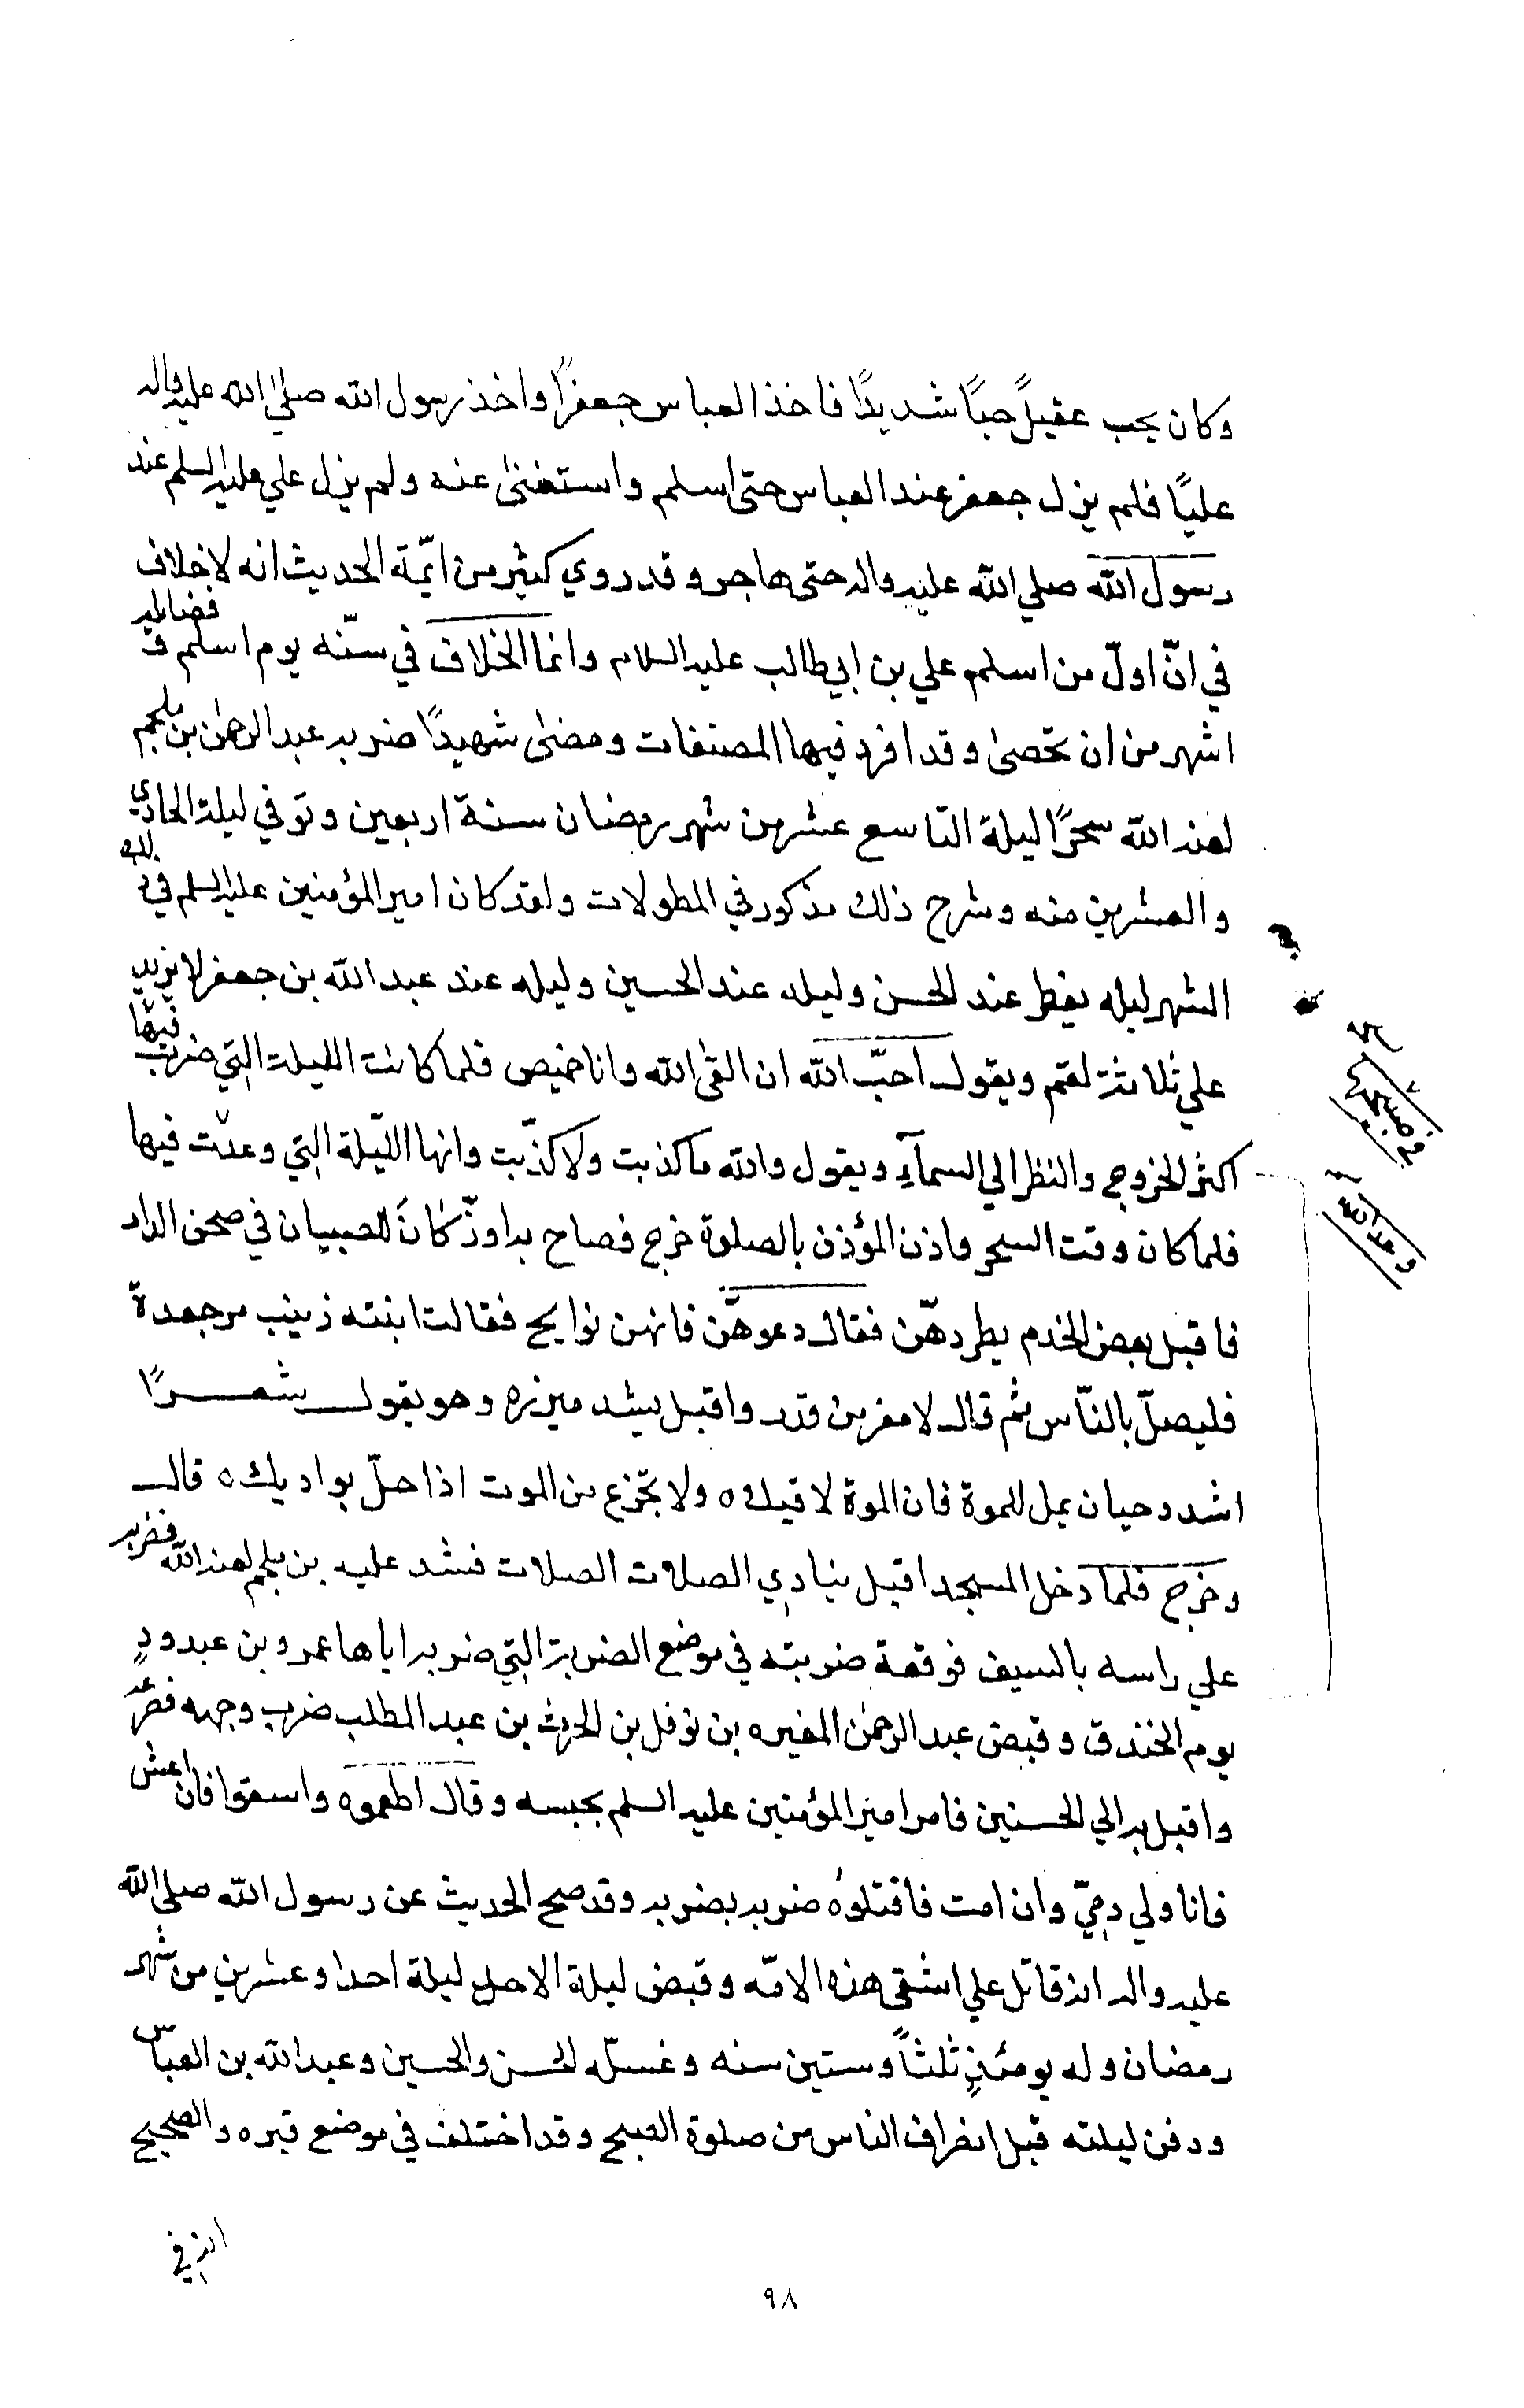 وكان يحب عقيلً حبًا شديدًا فاخذ العباس جعفرًا واخذ رسول الله صلى الله عليه واله
عليًا فلم يزل جعفر عند العباس حتى اسلم واستغنى عنه ولم يزل علي عليه السلم عند
رسول الله صلي الله عليه واله حتى هاجر وقد روي كثير من ائمّة الحديث انه لا خلاف
في انّ اولّ من اسلم علي بن ابي طالب عليه السلام وانما الخلاف في سنّه يوم اسلم و فضايله
اشهر من ان تحصىٰ وقد افرد فيها المصنفات ومضىٰ شهيدًا ضربه عبد الرحمٰن بن ملجم
لعنه الله سحرًا ليلة التاسع عشر من شهر رمضان سنة اربعين وتوفي ليلة الحادي
والعشرين منه وشرح ذلك مذكور في المطولات ولقد كان امير المؤمنين عليه السلم في ذلك
الشهر ليله يفطر عند الحسن وليله عند الحسين وليله عند عبد الله بن جعفر لا يزيد
علي ثلاثة لقم ويقول احبّ الله ان القىٰ الله وانا خميص فلما كانت الليلة التي ضرب فيها
اكثر الخروج والنظر الي السمآء ويقول والله ما كذبت ولا كذّبت وانها الليّلة التي وعدت فيها
فلما كان وقت السحر واذن المؤذن بالصلوة خرج فصاح به اوزّ كانَ للصبيان في صحن الدار
فاقبل بعض الخدم يطردهّن فقال دعوهّن فانهن نوايح فقالت ابنته زينب مر جعدة
فليصلّ بالنّاس ثم قال لا مفر من قدر واقبل يشد ميزره وهو يقول شعرًا
اشدد حيازيمل للموة فان الموة لاقيك ه ولا تجزع من الموت اذا حلّ بواديك ه قال
وخرج فلما دخل المسجد اقبل ينادي الصلات الصلات فشد عليه بن ملجم لعنه الله فضربه
علي راسه بالسيف فوقعة ضربته في موضع الضربة التي ضربه اياها عمرو بن عبدودٍ
يوم الخندق وقبض عبد الرحمٰن المغيره بن نوفل بن الحرث بن عبد المطلب ضرب وجهه فصرعه
واقبل به الي الحسنين فامر امير المؤمنين عليه السلم بحبسه وقال اطعموه واسقوا فان اعش
فانا ولي دميّ وان امت فاقتلوهُ ضربه بضربه وقد صح الحديث عن رسول الله صلى الله
عليه واله ان قاتل علي اشقى هذه الامّه وقبض ليلة الاحد ليلة احدا وعشرين من شهر
رمضان وله يومئذٍ ثلثاً وستين سنه وغسلّه الحسن والحسين وعبد الله بن العباس
ودفن ليلته قبل انصراف الناس من صلوة الصبح وقد اختلف في موضع قبره والصحيح
انه في
٩٨